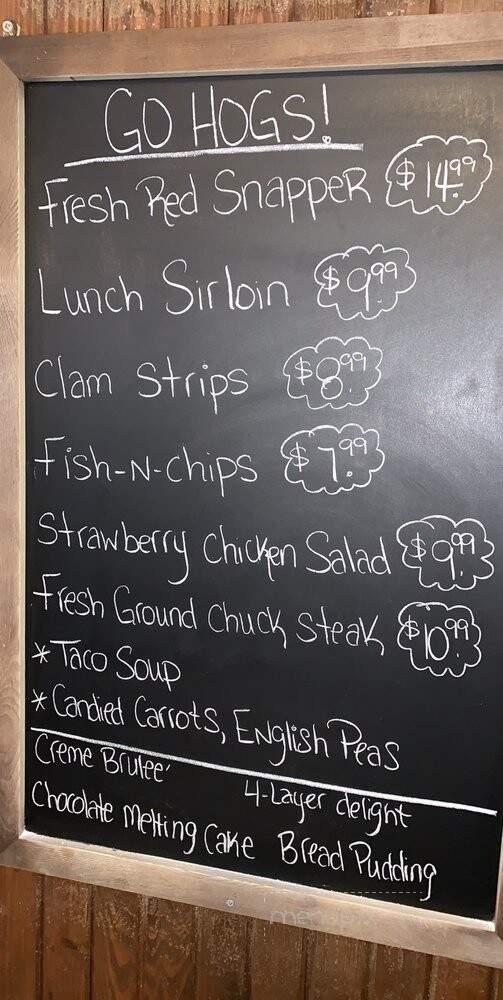 GO HOGS!
Fresh Red Snapper $14.99
Lunch Sirloin $9.99
Clam Strips $8.99
Fish-N-Chips $7.99
Strawberry Chicken Salad $9.99
Fresh Ground Chuck Steak $10.99
*Taco Soup
*Candied Carrots, English Peas
Creme Brulee' 4-Layer delight
Chocolate Melting Cake Bread Pudding